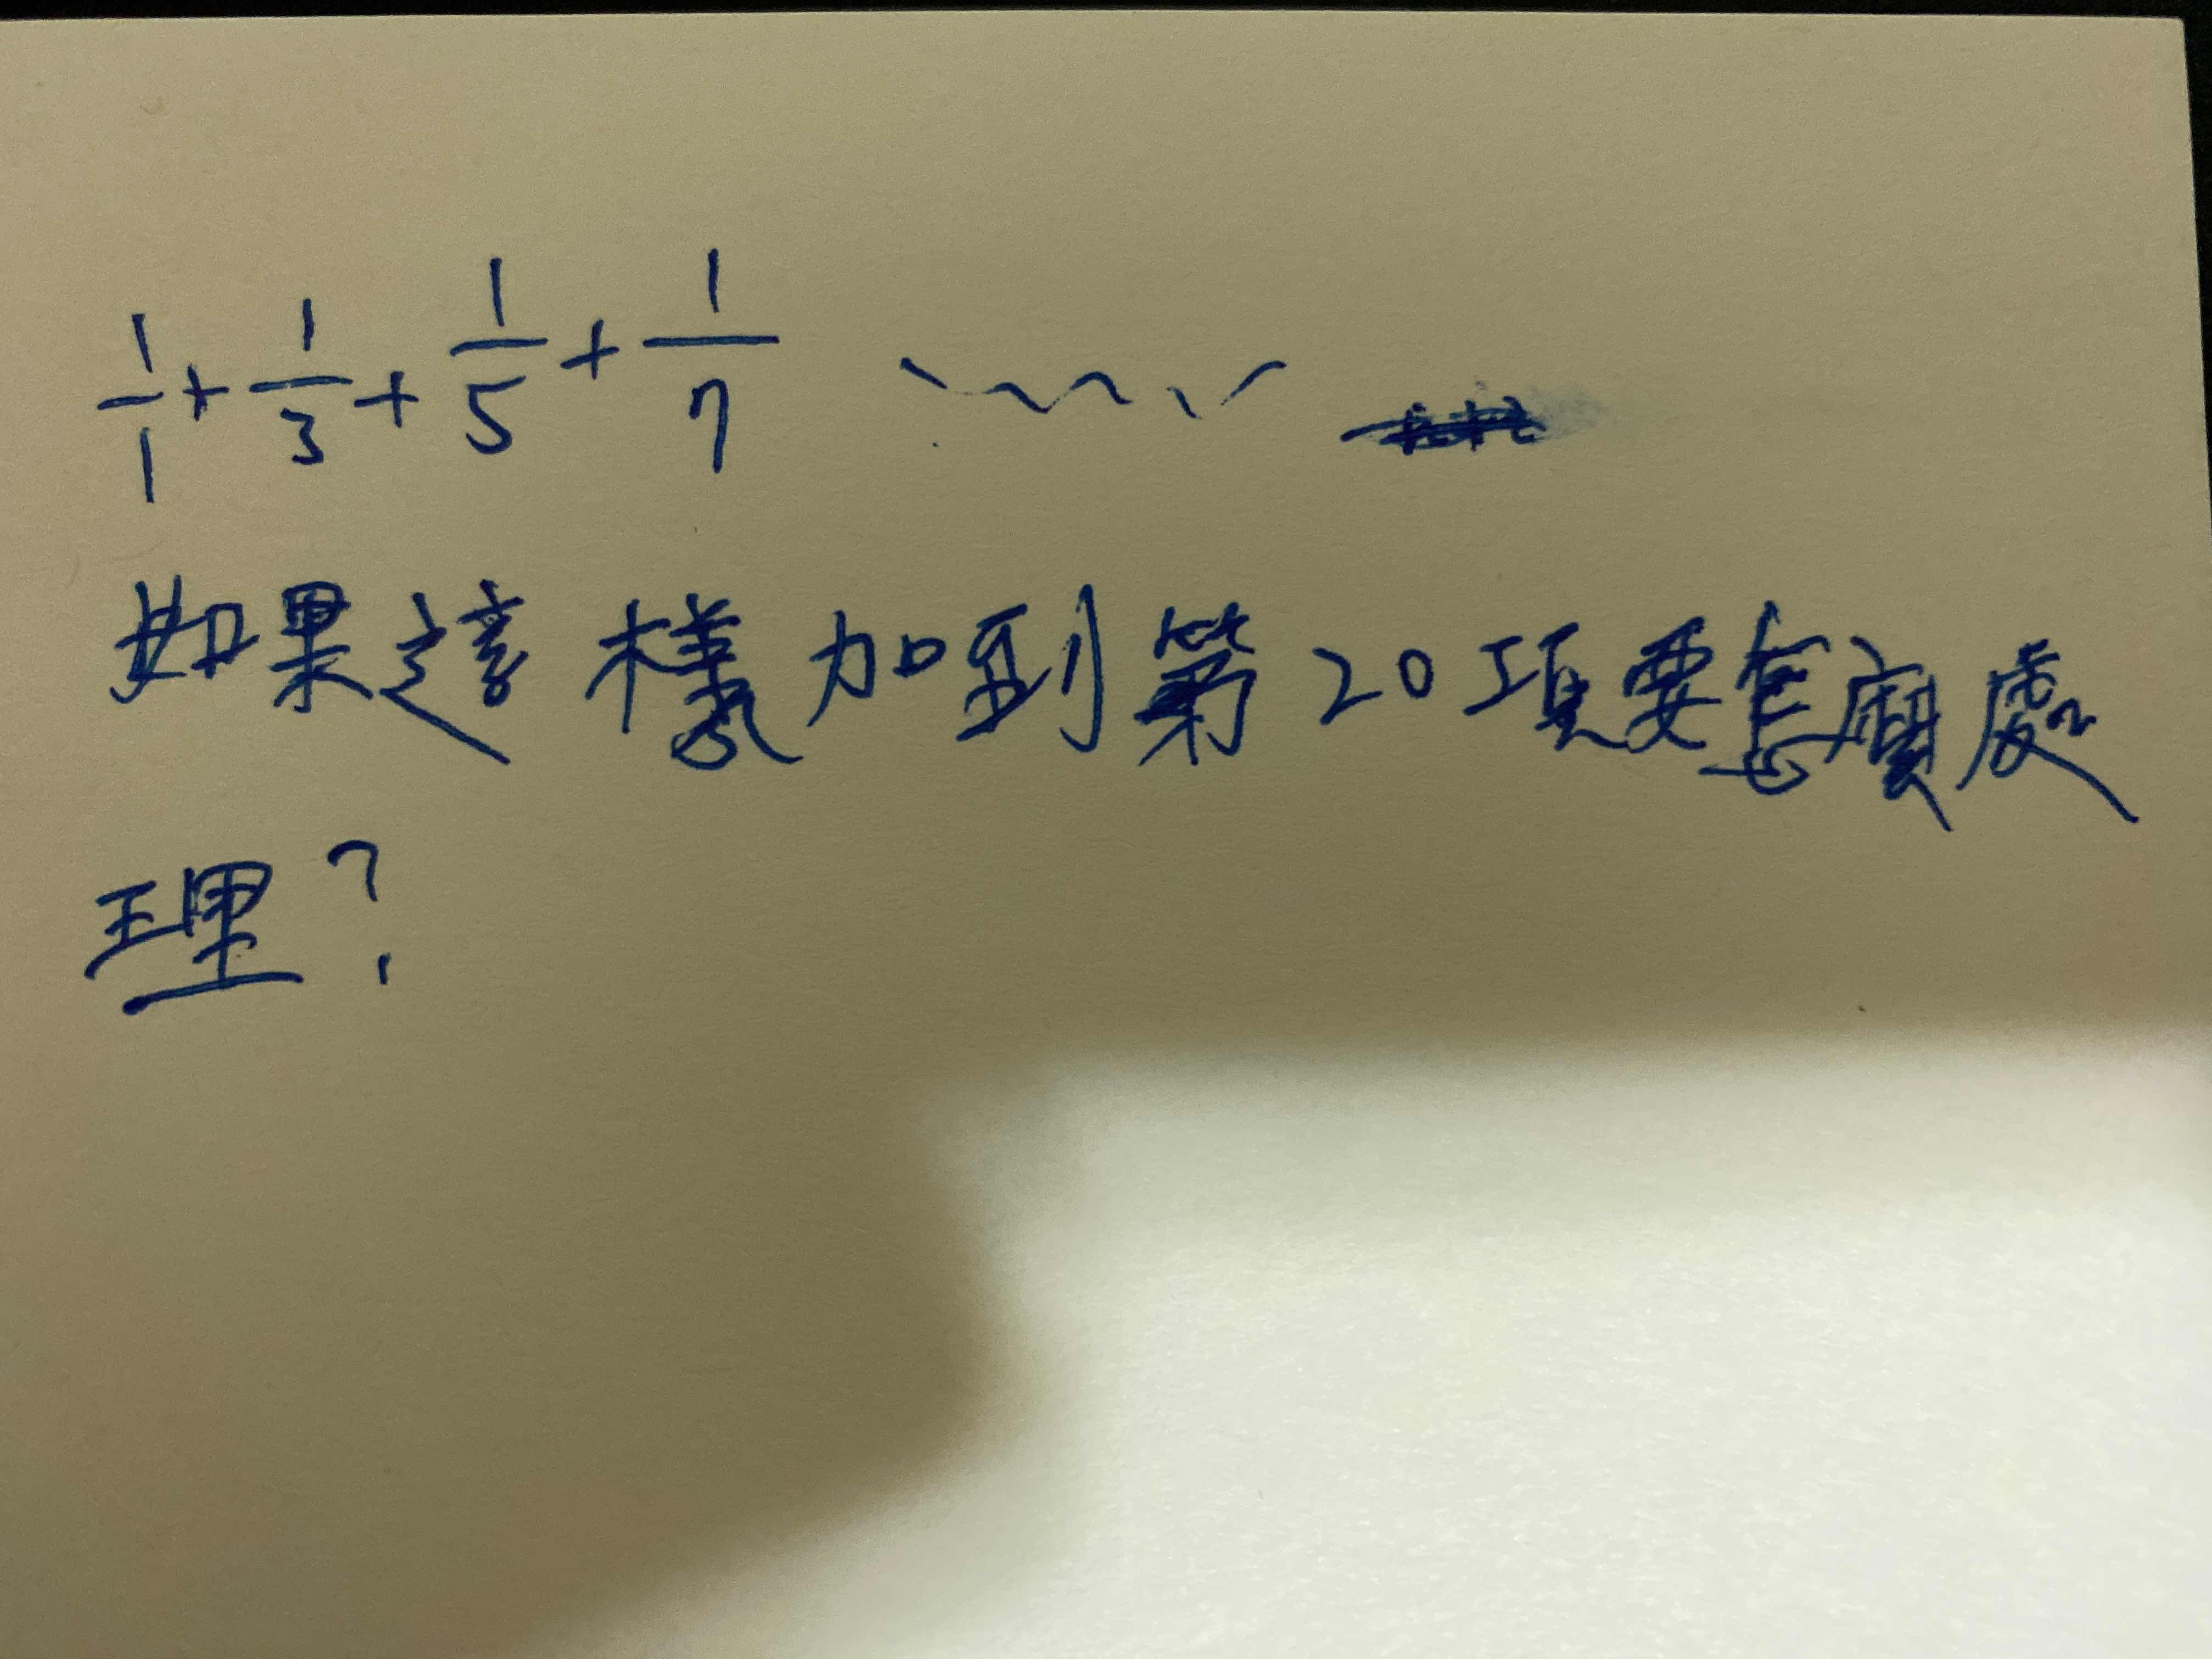 1/1 + 1/3 + 1/5 + 1/7 ······
如果這樣加到第20項要怎麼處
理?